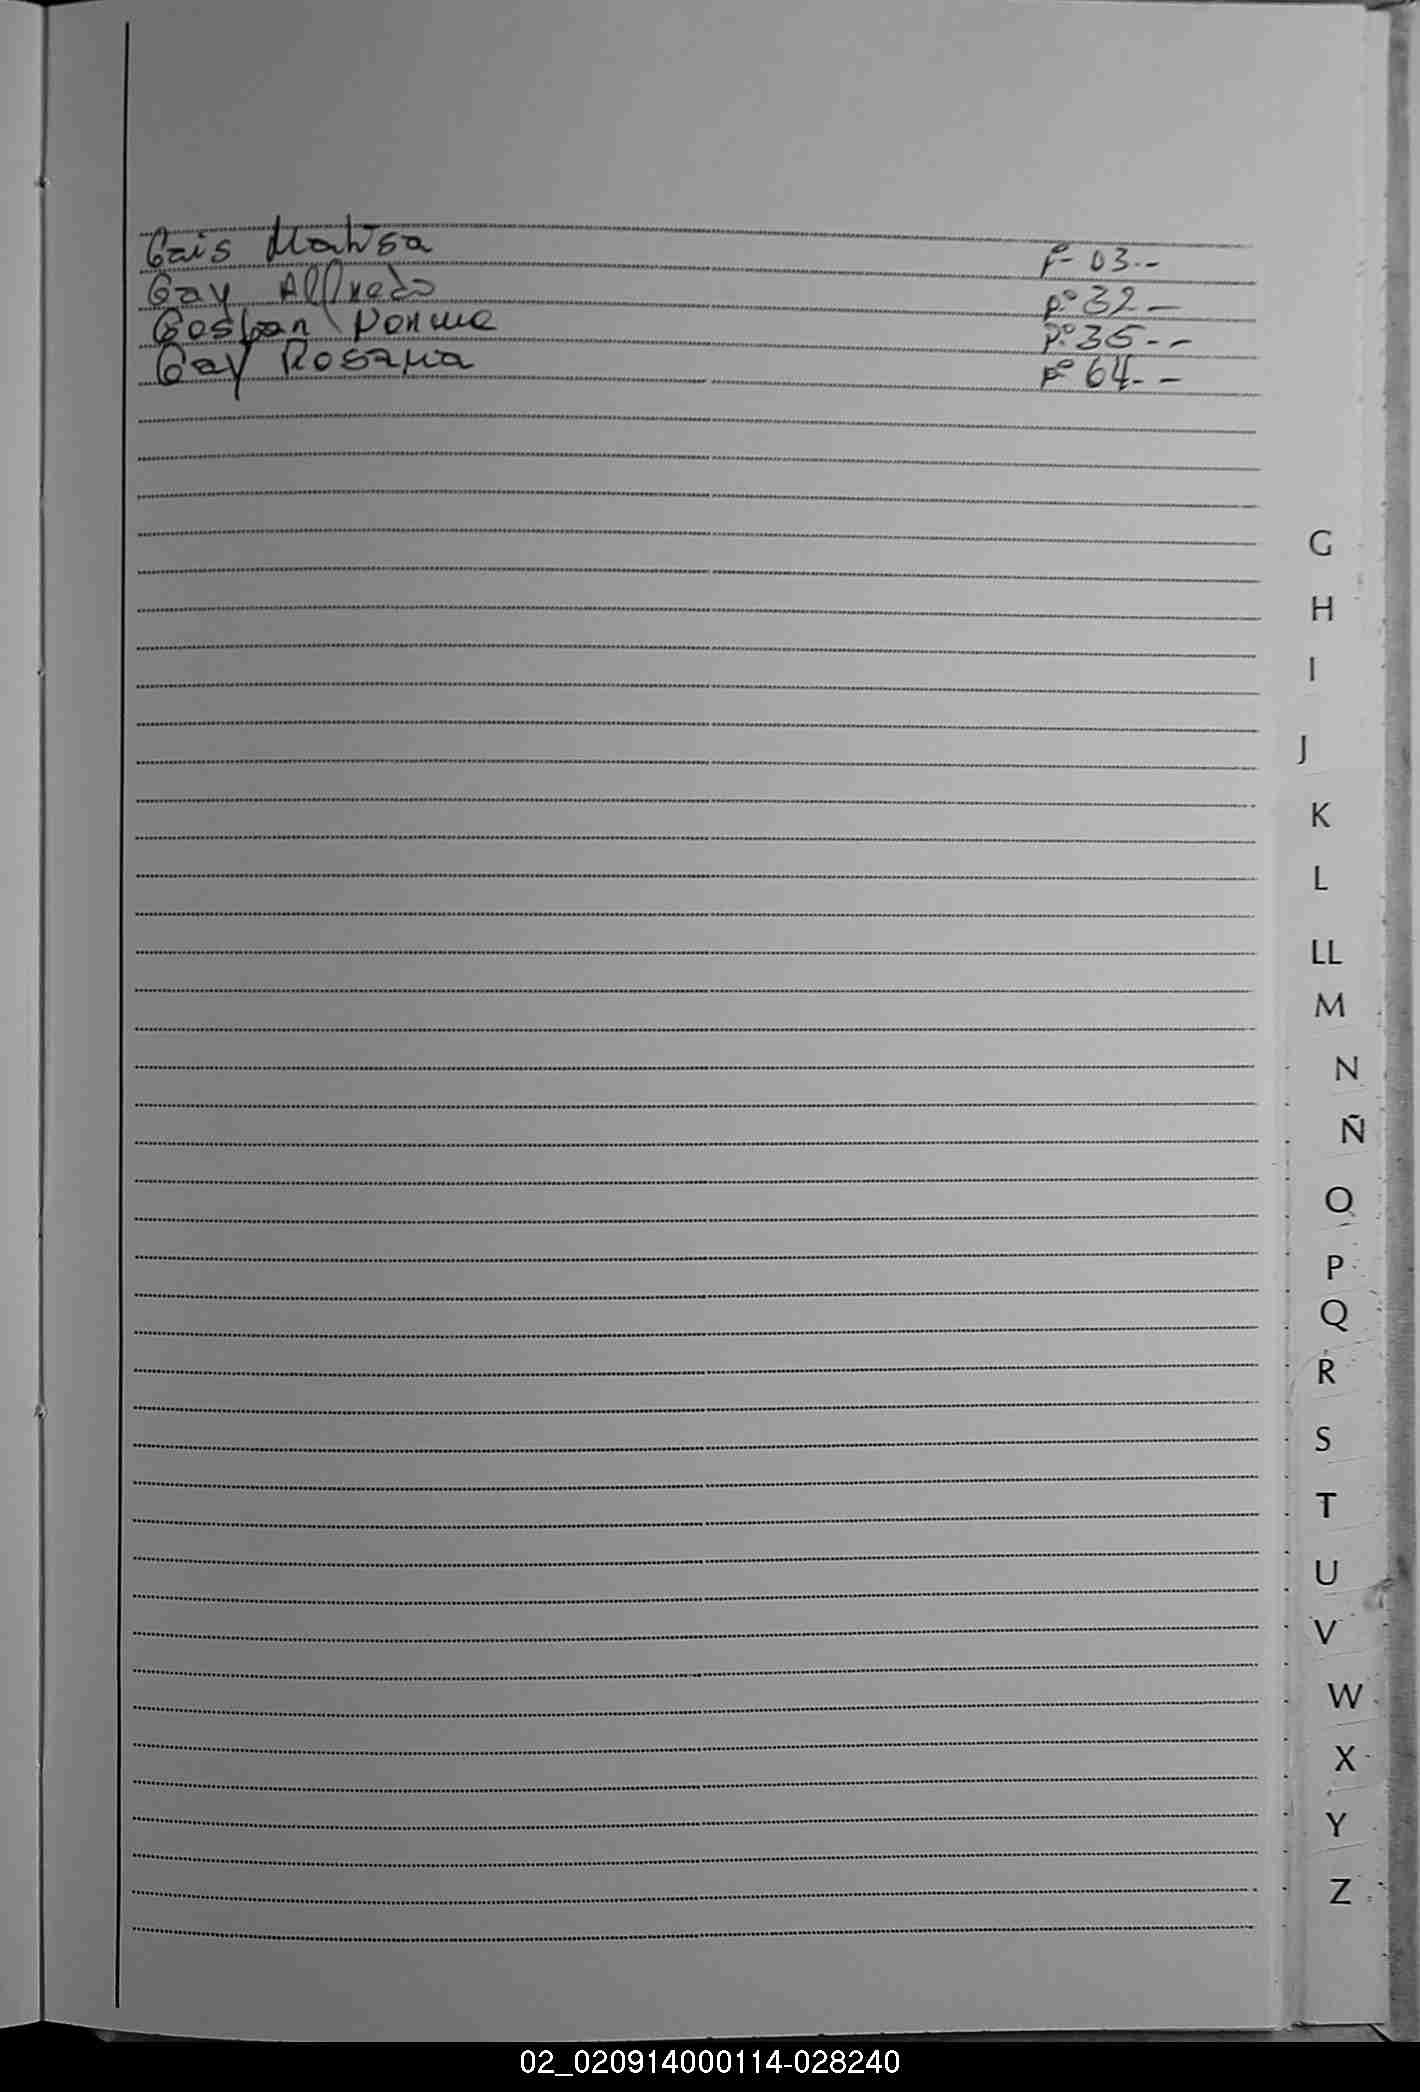 Gais Marisa Fº 03.-
Gay Alfredo Fº 32-
Gosban Norma Fº 35--
Gay Rosana Fº 64--
G
H
I
J
K
L
LL
M
N
Ñ
O
P
Q
R
S
T
U
V
W
X
Y
Z
02_020914000114-028240